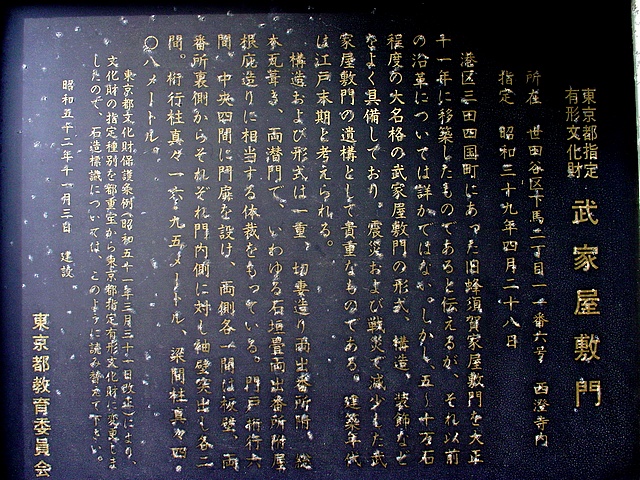 東京都指定
有形文化財
武家屋敷門
所在 世田谷区下馬二丁目一一番六号 西澄寺内
指定 昭和三十九年四月二十八日
港区三田四国町にあった旧蜂須賀家屋敷門を大正
十一年に移築したものであると伝えるが、それ以前
の沿革については詳かではない。しかし、五〜十万石
程度の大名格の武家屋敷門の形式、構造、装飾など
をよく具備しており、震災および戦災で減少した武
家屋敷門の遺構として貴重なものである。建築年代
は江戸末期と考えられる。
構造および形式は一重、切妻造り両出番所附、総
本瓦葺き、両潜門で、いわゆる石垣畳両出番所附屋
根庇造りに相当する体裁をもっている。門戸桁行六
間、中央四間に門扉を設け、両側各一間は板壁、両
番所裏側からそれぞれ門内側に対し袖壁突出し各二
間。桁行柱真々一六・九五メートル、梁間柱真々四・
〇八メートル。
東京都文化財保護条例(昭和五十一年三月三十一日改正)により、
文化財の指定種別を都重宝から東京都指定有形文化財に変更しま
したので、石造標識については、このように読み替えて下さい。
昭和五十二年十一月三日 建設
東京都教育委員会